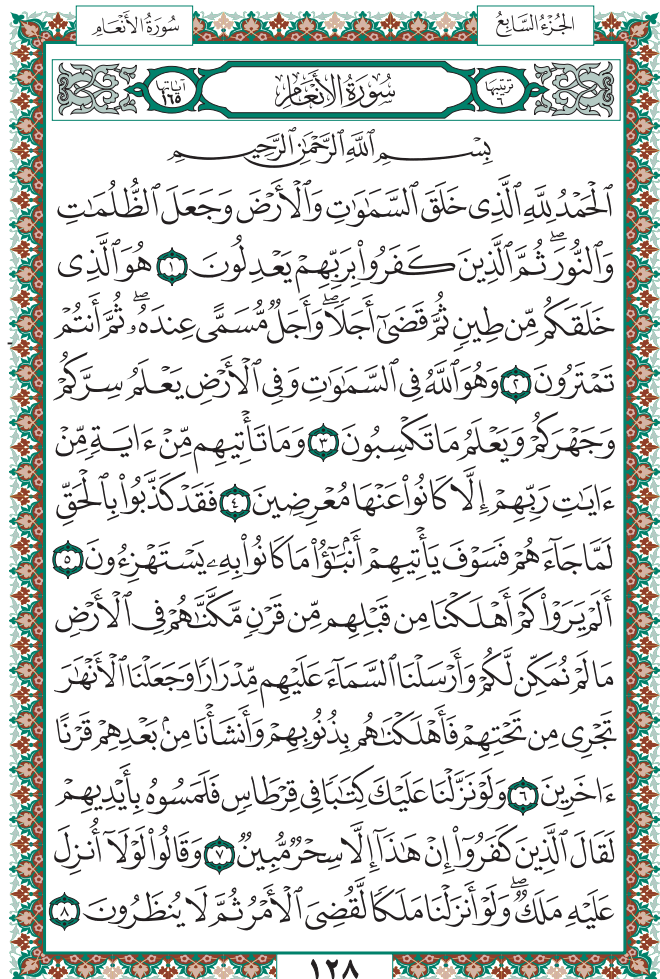 الجُزْءُ السَّابِعُ
سُورَةُ الأَنْعَام
تَرْتِيبُهَا ٦
سُورَةُ الأَنْعَامِ
آيَاتُهَا ١٦٥
بِسْمِ ٱللَّهِ ٱلرَّحْمَٰنِ ٱلرَّحِيمِ
ٱلْحَمْدُ لِلَّهِ ٱلَّذِى خَلَقَ ٱلسَّمَٰوَٰتِ وَٱلْأَرْضَ وَجَعَلَ ٱلظُّلُمَٰتِ
وَٱلنُّورَۖ ثُمَّ ٱلَّذِينَ كَفَرُوا۟ بِرَبِّهِمْ يَعْدِلُونَ ١ هُوَ ٱلَّذِى
خَلَقَكُم مِّن طِينٍ ثُمَّ قَضَىٰٓ أَجَلًاۖ وَأَجَلٌ مُّسَمًّى عِندَهُۥۖ ثُمَّ أَنتُمْ
تَمْتَرُونَ ٢ وَهُوَ ٱللَّهُ فِى ٱلسَّمَٰوَٰتِ وَفِى ٱلْأَرْضِ يَعْلَمُ سِرَّكُمْ
وَجَهْرَكُمْ وَيَعْلَمُ مَا تَكْسِبُونَ ٣ وَمَا تَأْتِيهِم مِّنْ ءَايَةٍ مِّنْ
ءَايَٰتِ رَبِّهِمْ إِلَّا كَانُوا۟ عَنْهَا مُعْرِضِينَ ٤ فَقَدْ كَذَّبُوا۟ بِٱلْحَقِّ
لَمَّا جَآءَهُمْ فَسَوْفَ يَأْتِيهِمْ أَنۢبَٰٓؤُا۟ مَا كَانُوا۟ بِهِۦ يَسْتَهْزِءُونَ ٥
أَلَمْ يَرَوْا۟ كَمْ أَهْلَكْنَا مِن قَبْلِهِم مِّن قَرْنٍ مَّكَّنَّٰهُمْ فِى ٱلْأَرْضِ
مَا لَمْ نُمَكِّن لَّكُمْ وَأَرْسَلْنَا ٱلسَّمَآءَ عَلَيْهِم مِّدْرَارًا وَجَعَلْنَا ٱلْأَنْهَٰرَ
تَجْرِى مِن تَحْتِهِمْ فَأَهْلَكْنَٰهُم بِذُنُوبِهِمْ وَأَنشَأْنَا مِنۢ بَعْدِهِمْ قَرْنًا
ءَاخَرِينَ ٦ وَلَوْ نَزَّلْنَا عَلَيْكَ كِتَٰبًا فِى قِرْطَاسٍ فَلَمَسُوهُ بِأَيْدِيهِمْ
لَقَالَ ٱلَّذِينَ كَفَرُوٓا۟ إِنْ هَٰذَآ إِلَّا سِحْرٌ مُّبِينٌ ٧ وَقَالُوا۟ لَوْلَآ أُنزِلَ
عَلَيْهِ مَلَكٌۖ وَلَوْ أَنزَلْنَا مَلَكًا لَّقُضِىَ ٱلْأَمْرُ ثُمَّ لَا يُنظَرُونَ ٨
١٢٨